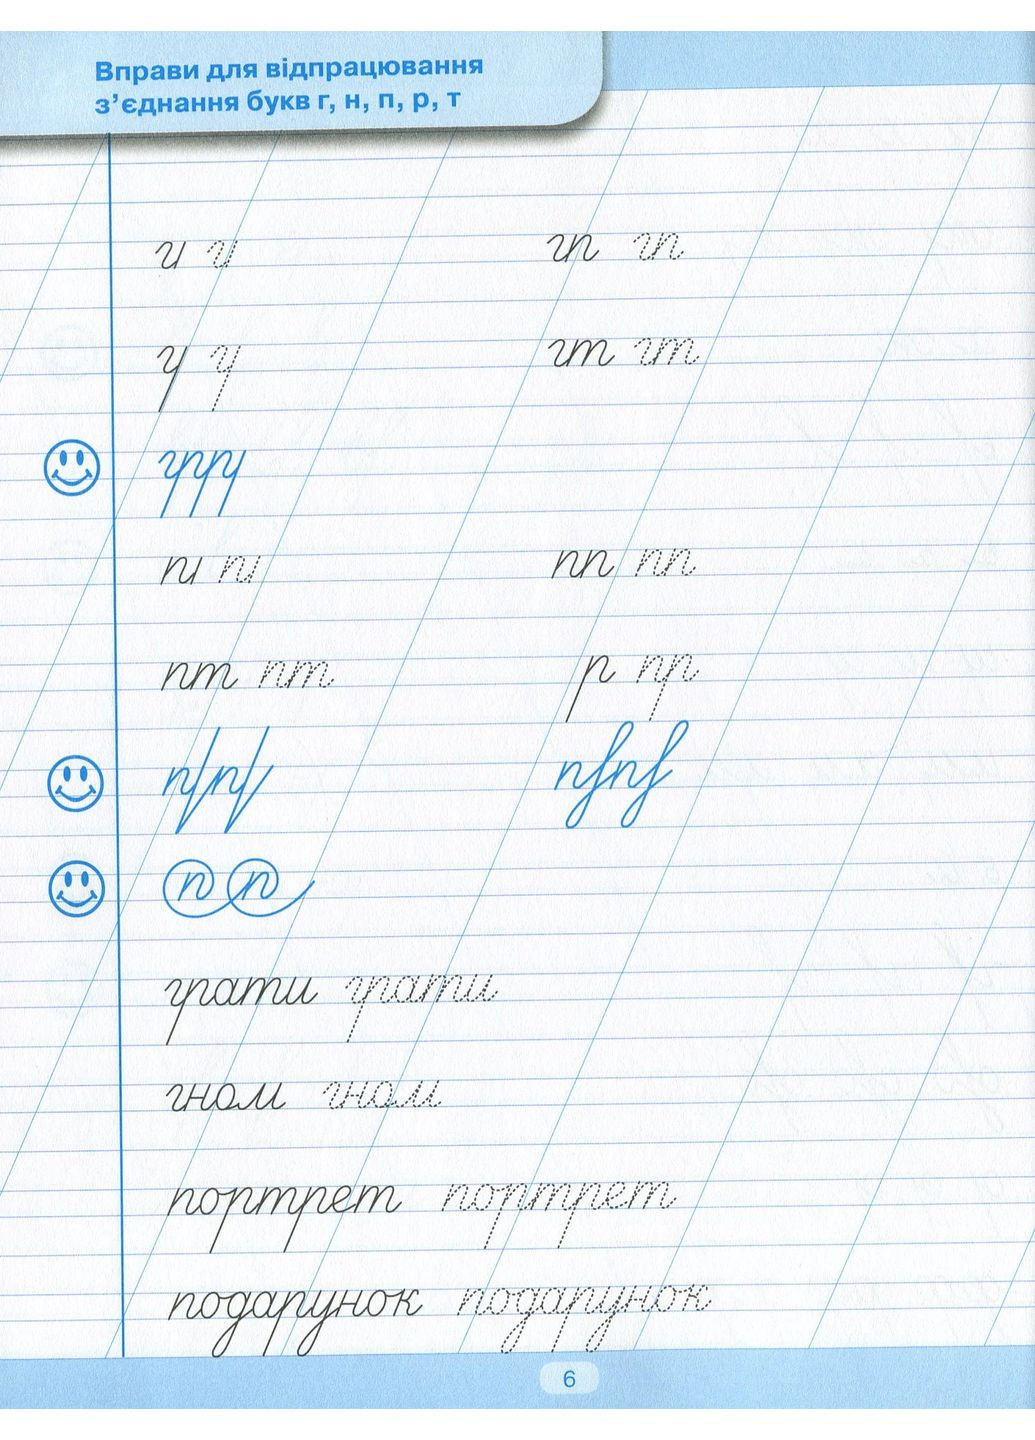 Вправи для відпрацювання
з’єднання букв г, н, п, р, т
гп гп
гт гт
пп пп
пт пт
р пр
п п
грати грати
гном гном
портрет портрет
подарунок подарунок
6